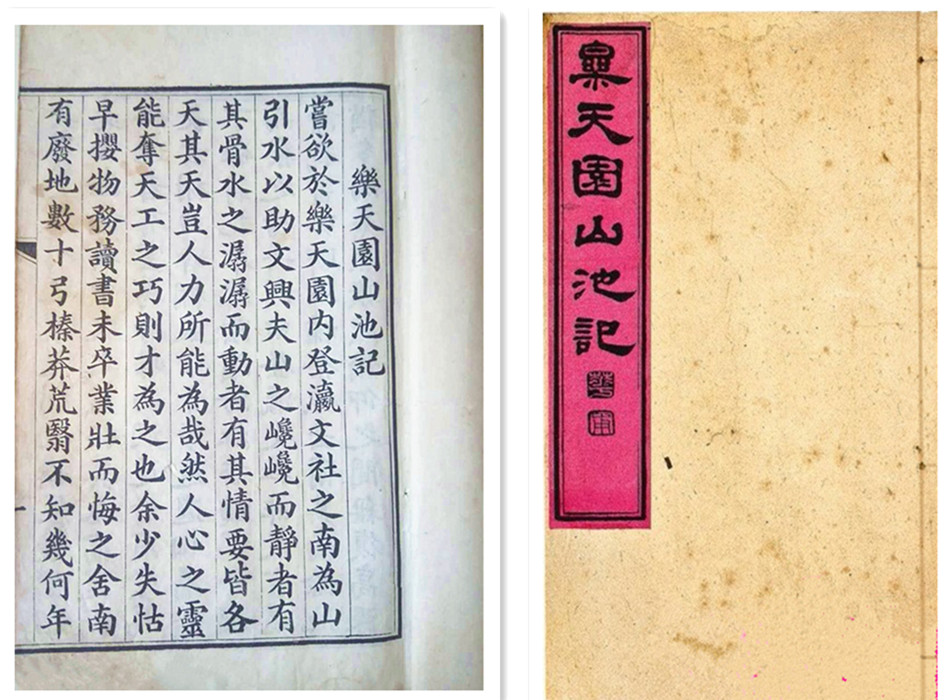 樂天園山池記
樂天園山池記
嘗欲於樂天園内登瀛文社之南為山
引水以助文興夫山之巉巉而靜者有
其骨水之潺潺而動者有其情要皆各
天其天豈人力所能為哉然人心之靈
能奪天工之巧則才為之也余少失怙
早攖物務讀書未卒業壯而悔之舍南
有廢地數十弓榛莽荒翳不知幾何年